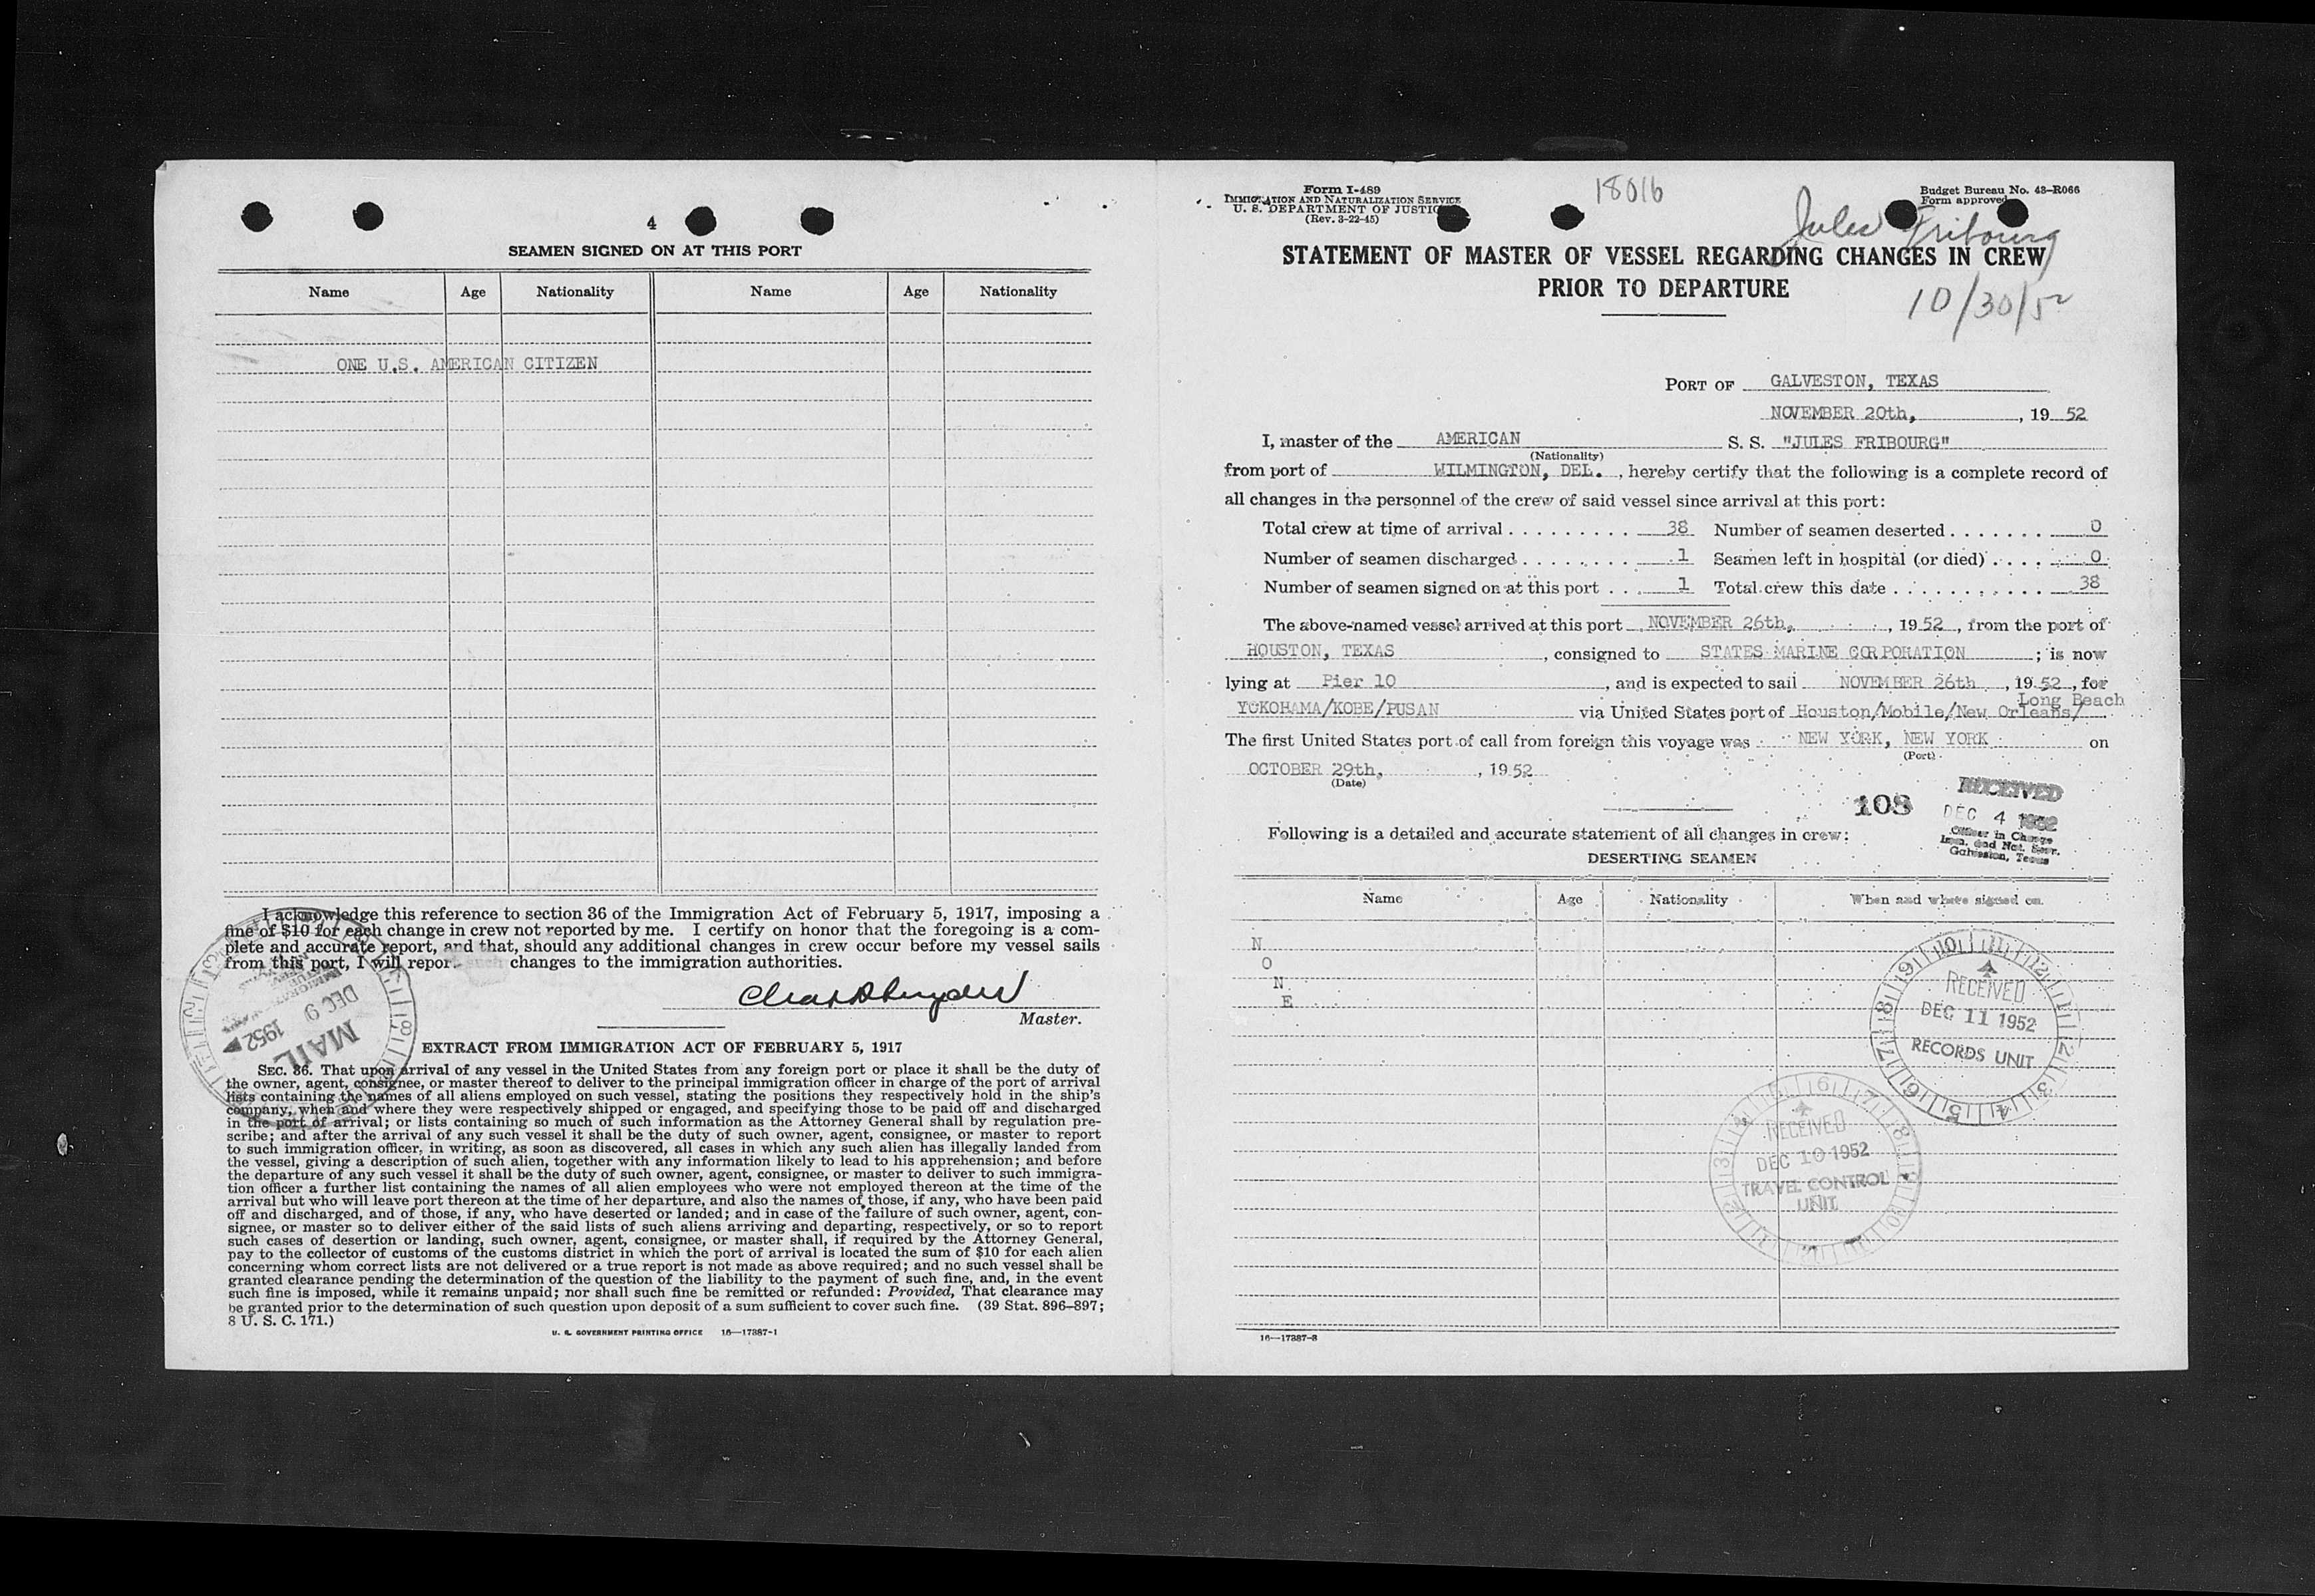 4
SEAMEN SIGNED ON AT THIS PORT
Name Age Nationality Name Age Nationality
ONE U.S. AMERICAN CITIZEN
I acknowledge this reference to section 36 of the Immigration Act of February 5, 1917, imposing a
fine of $10 for each change in crew not reported by me. I certify on honor that the foregoing is a com-
plete and accurate report, and that, should any additional changes in crew occur before my vessel sails
from this port, I will repor such changes to the immigration authorities.
Master.
MAIL
DEC 9 1952
EXTRACT FROM IMMIGRATION ACT OF FEBRUARY 5, 1917
SEC. 36. That upon arrival of any vessel in the United States from any foreign port or place it shall be the duty of
the owner, agent, consignee, or master thereof to deliver to the principal immigration officer in charge of the port of arrival
lists containing the names of all aliens employed on such vessel, stating the positions they respectively hold in the ship's
company, when and where they were respectively shipped or engaged, and specifying those to be paid off and discharged
in the port of arrival; or lists containing so much of such information as the Attorney General shall by regulation pre-
scribe; and after the arrival of any such vessel it shall be the duty of such owner, agent, consignee, or master to report
to such immigration officer, in writing, as soon as discovered, all cases in which any such alien has illegally landed from
the vessel, giving a description of such alien, together with any information likely to lead to his apprehension; and before
the departure of any such vessel it shall be the duty of such owner, agent, consignee, or master to deliver to such immigra-
tion officer a further list containing the names of all alien employees who were not employed thereon at the time of the
arrival but who will leave port thereon at the time of her departure, and also the names of those, if any, who have been paid
off and discharged, and of those, if any, who have deserted or landed; and in case of the failure of such owner, agent, con-
signee, or master so to deliver either of the said lists of such aliens arriving and departing, respectively, or so to report
such cases of desertion or landing, such owner, agent, consignee, or master shall, if required by the Attorney General,
pay to the collector of customs of the customs district in which the port of arrival is located the sum of $10 for each alien
concerning whom correct lists are not delivered or a true report is not made as above required; and no such vessel shall be
granted clearance pending the determination of the question of the liability to the payment of such fine, and, in the event
such fine is imposed, while it remains unpaid; nor shall such fine be remitted or refunded: Provided, That clearance may
be granted prior to the determination of such question upon deposit of a sum sufficient to cover such fine. (39 Stat. 896–897;
8 U. S. C. 171.)
U. S. GOVERNMENT PRINTING OFFICE 16—17387-1
Form I-489
IMMIGRATION AND NATURALIZATION SERVICE
U. S. DEPARTMENT OF JUSTIC
(Rev. 3-22-45)
18016
Budget Bureau No. 43–R066
Form approved
Jules Fribourg
STATEMENT OF MASTER OF VESSEL REGARDING CHANGES IN CREW
PRIOR TO DEPARTURE
10/30/52
PORT OF GALVESTON, TEXAS
NOVEMBER 20th, , 19 52
I, master of the AMERICAN S. S. "JULES FRIBOURG"
(Nationality)
from port of WILMINGTON, DEL. , hereby certify that the following is a complete record of
all changes in the personnel of the crew of said vessel since arrival at this port:
Total crew at time of arrival . . . . . . . . . . 38 Number of seamen deserted . . . . . . . 0
Number of seamen discharged . . . . . . . . . 1 Seamen left in hospital (or died) . . . . 0
Number of seamen signed on at this port . . . 1 Total crew this date . . . . . . . . . . . 38
The above-named vessel arrived at this port NOVEMBER 26th, , 19 52 , from the port of
HOUSTON, TEXAS , consigned to STATES MARINE CORPORATION ; is now
lying at Pier 10 , and is expected to sail NOVEMBER 26th , 19 52 , for
YOKOHAMA/KOBE/PUSAN via United States port of Houston/Mobile/New Orleans/ Long Beach
The first United States port of call from foreign this voyage was NEW YORK, NEW YORK on
(Port)
OCTOBER 29th, , 19 52
(Date)
108
RECEIVED
DEC 4 1952
Officer in Charge
Imm. and Nat. Serv.
Galveston, Texas
Following is a detailed and accurate statement of all changes in crew:
DESERTING SEAMEN
Name Age Nationality When and where signed on
N
O
N
E
RECEIVED
DEC 11 1952
RECORDS UNIT
RECEIVED
DEC 10 1952
TRAVEL CONTROL
UNIT
16—17387-3